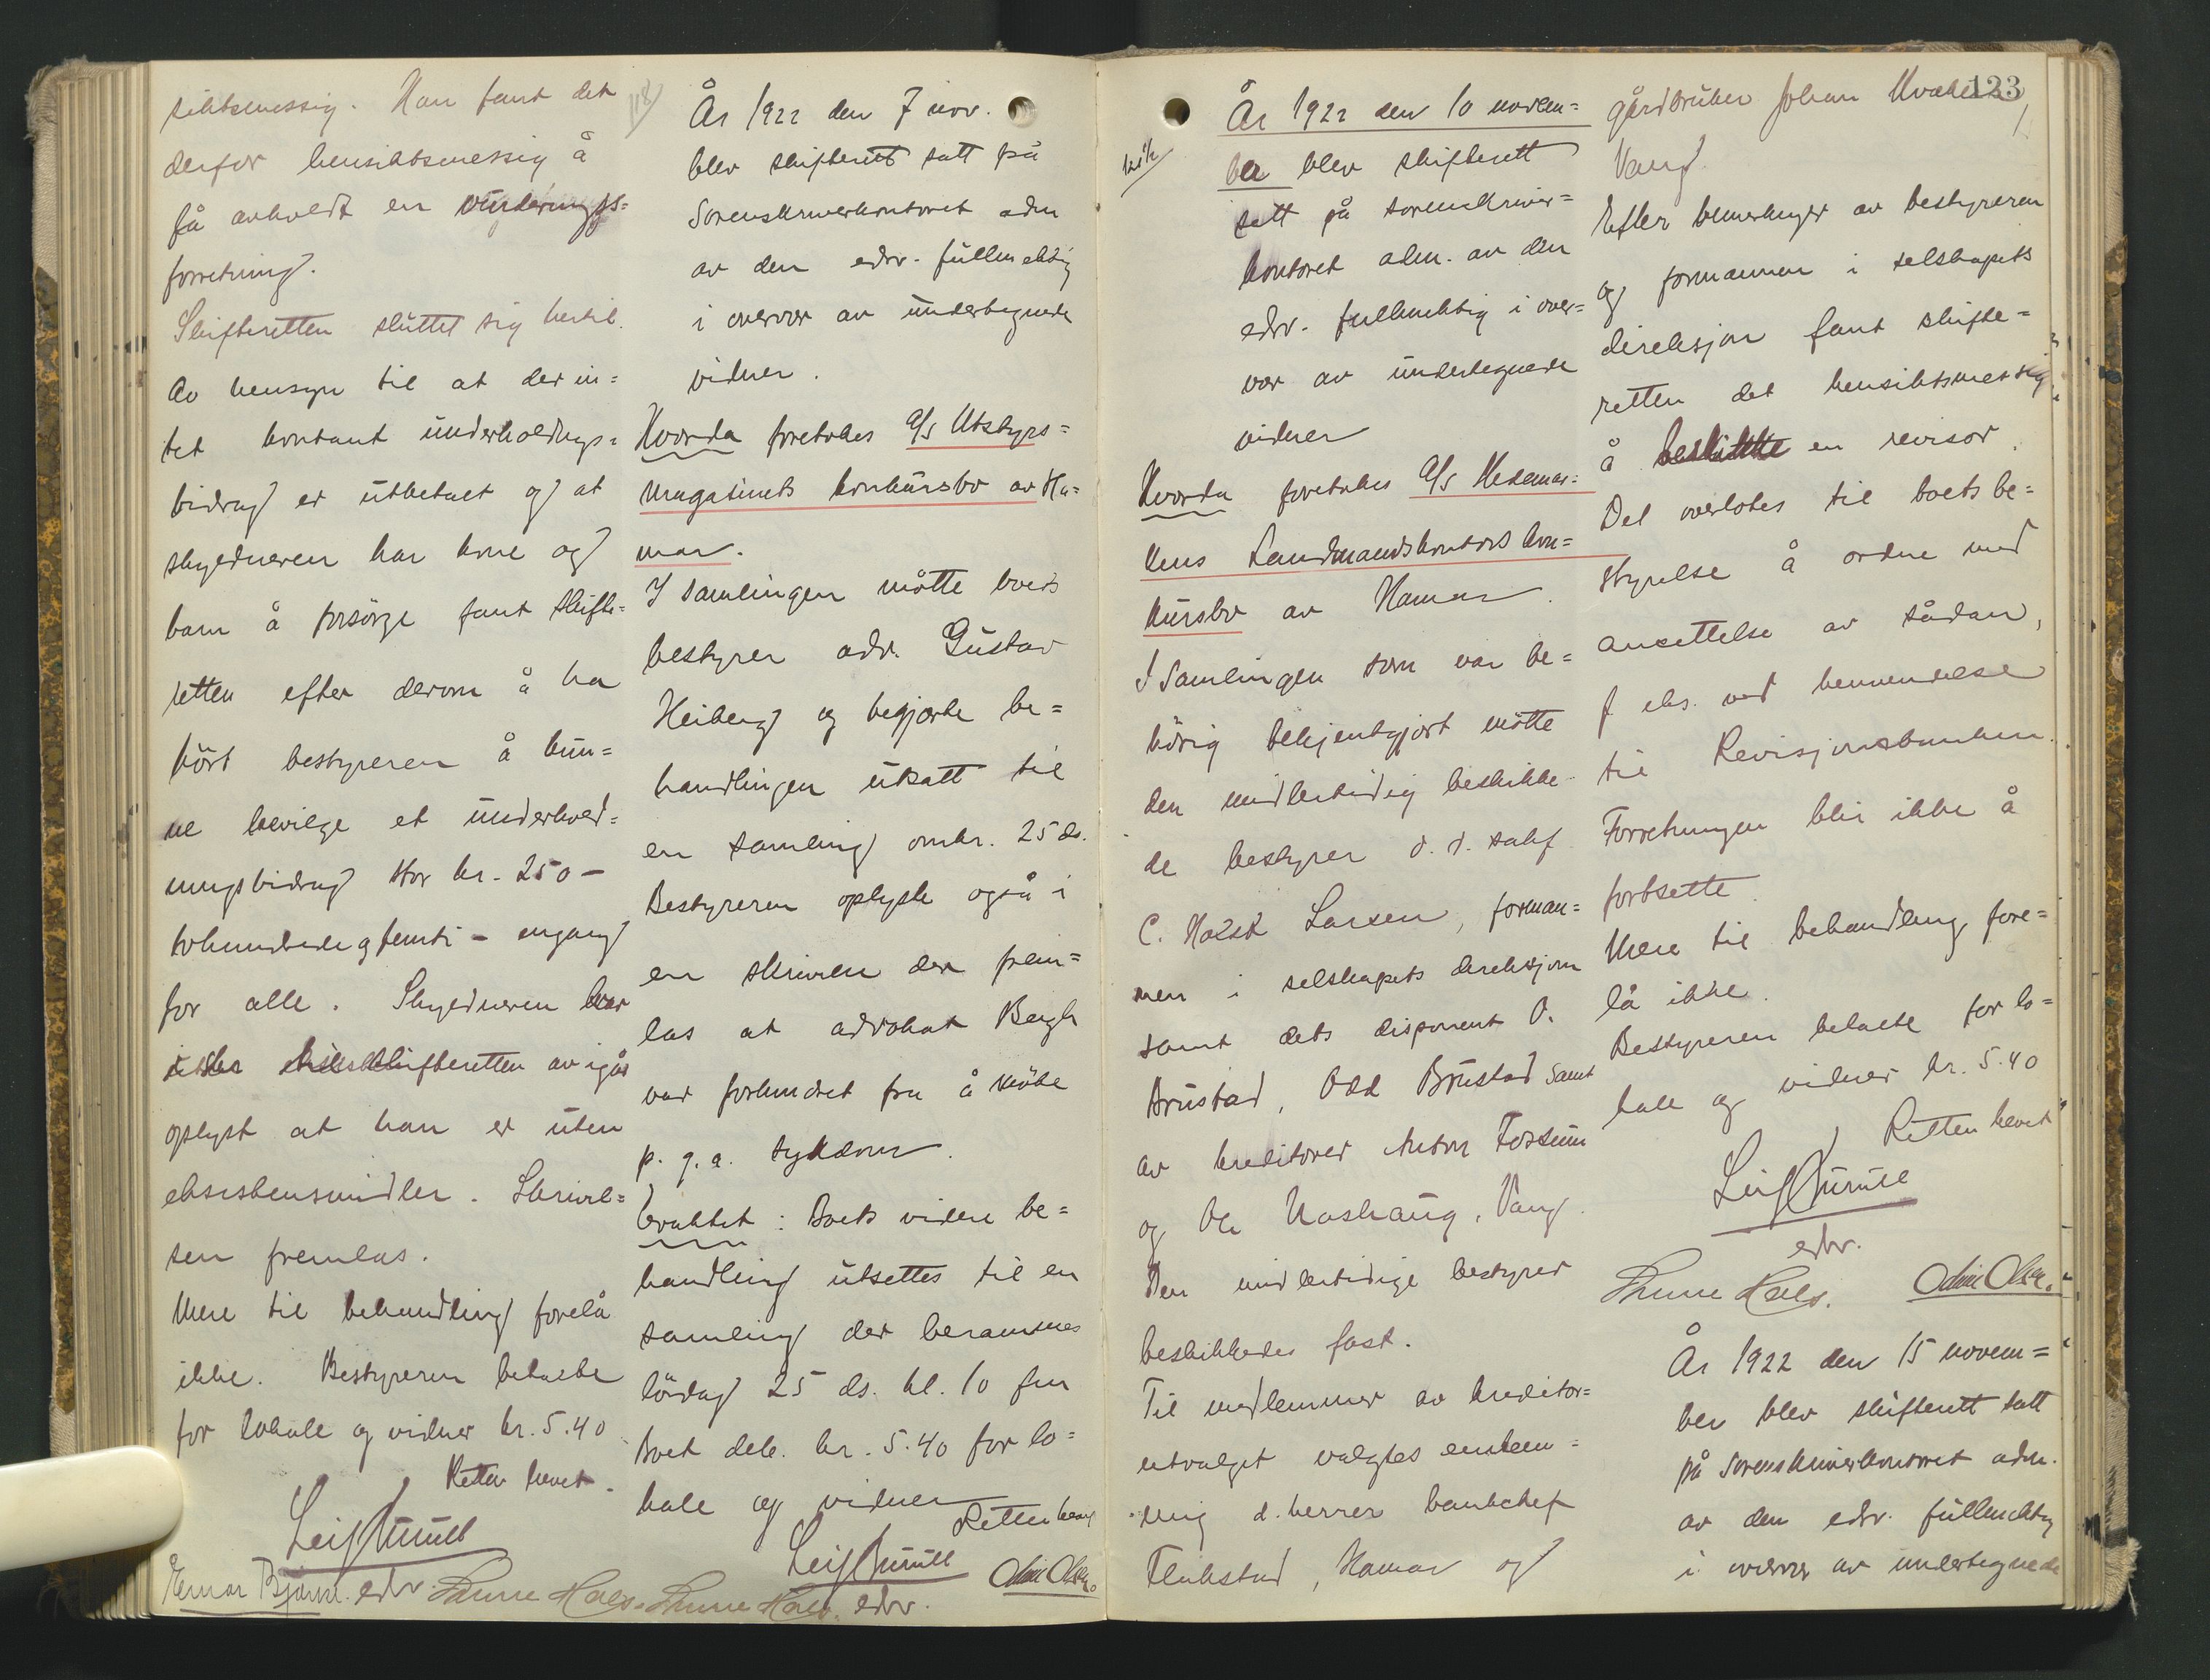 siktsmessig. Han fant det
derfor hensiktsmessig å
få avholdt en vurderings=
forretning.
Skifteretten sluttet sig hertil.
Av hensyn til at der in=
tet kontant underholdnings=
bidrag er utbetalt og at
skyldneren har kone og
barn å forsörge fant skifte=
retten efter derom å ha
hört bestyreren å kun=
ne bevilge et underhold=
ningsbidrag stor kr. 250 -
tohundrede og femti - engang
for alle. Skyldneren har
skifteretten av igår
oplyst at han er uten
eksistensmidler. Skrivel=
sen fremlas.
Mere til behandling forelå
ikke. Bestyreren betalte
for lokale og vidner kr. 5.40
Retten hevet.
Leif
Einar Bjørnl. edsv. Thune Hals.
118/
År 1922 den 7 nov.
blev skifterett satt på
Sorenskriverkontoret adm
av den edsv. fullmektig
i overvær av undertegnede
vidner.
Hvorda foretokes A/S Utstyrs=
magasinets konkursbo av Ha=
mar.
I samlingen mötte boets
bestyrer adv. Gustav
Heiberg og begjærte be=
handlingen utsatt til
en samling omkr. 25 ds.
Bestyreren oplyste også i
en skrivelse der frem=
las at advokat Bergh
var forhindret fra å möte
p. g. a. sykdom.
besluttet: Boets videre be=
handling utsettes til en
samling der berammes
lördag 25 ds. kl. 10 fm
Boet deb. kr. 5.40 for lo=
kale og vidner
Retten hevet
Leif
Thune Hals. edsv. Olsen.
År 1922 den 10 novem=
ber blev skifterett
satt på sorenskriver=
kontoret adm. av den
edsv. fullmektig i over=
vær av undertegnede
vidner
Hvorda foretokes A/S Hedemar=
kens Landmandskontors kon=
kursbo av Hamar.
I Samlingen som var be=
hörig bekjentgjort mötte
den midlertidig beskikke
de bestyrer o. r. sakf.
C. Holst Larsen, forman=
nen i selskapets direksjon
samt dets disponent O.
Brustad, Odd Brustad samt
av kreditorer Anton Fossum
og Ole Kashaug, Vang.
Den midlertidige bestyrer
beskikkedes fast.
Til medlemmer av kreditor=
utvalget valgtes enstem=
mig d. herrer banksjef
Flakstad, Hamar og
123
gårdbruker Johan
Vang.
Efter bemerkninger av bestyreren
og formannen i selskapets
direksjon fant skifte=
retten det hensiktsmessig
å beskikke en revisor.
Det overlotes til boets be=
styrelse å ordne med
ansettelse av sådan,
f eks. ved henvendelse
til Revisjonsbanken.
Forretningen blir ikke å
fortsette.
Mere til behandling fore=
lå ikke.
Bestyreren betalte for lo=
kale og vidner kr. 5.40
Retten hevet
Leif
edsv.
Thune Hals. Olsen.
År 1922 den 15 novem=
ber blev skifterett satt
på Sorenskriverkontoret adm.
av den edsv. fullmektig
i overvær av undertegnede